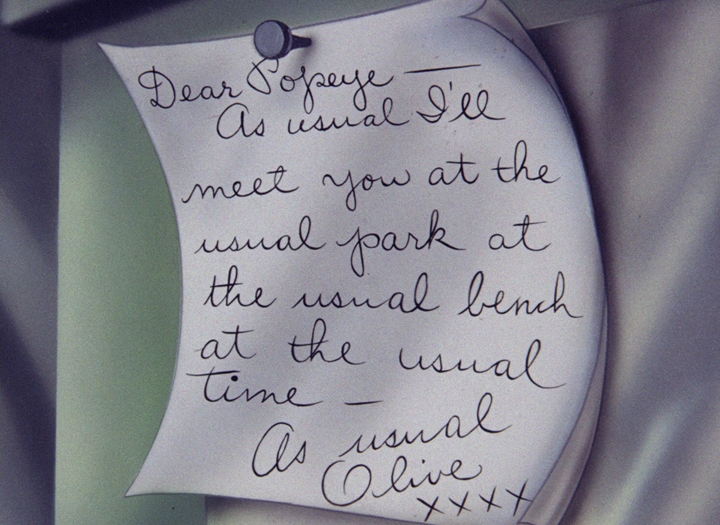 Dear Popeye —
As usual I'll
meet you at the
usual park at
the usual bench
at the usual
time —
As usual
Olive
xxxx